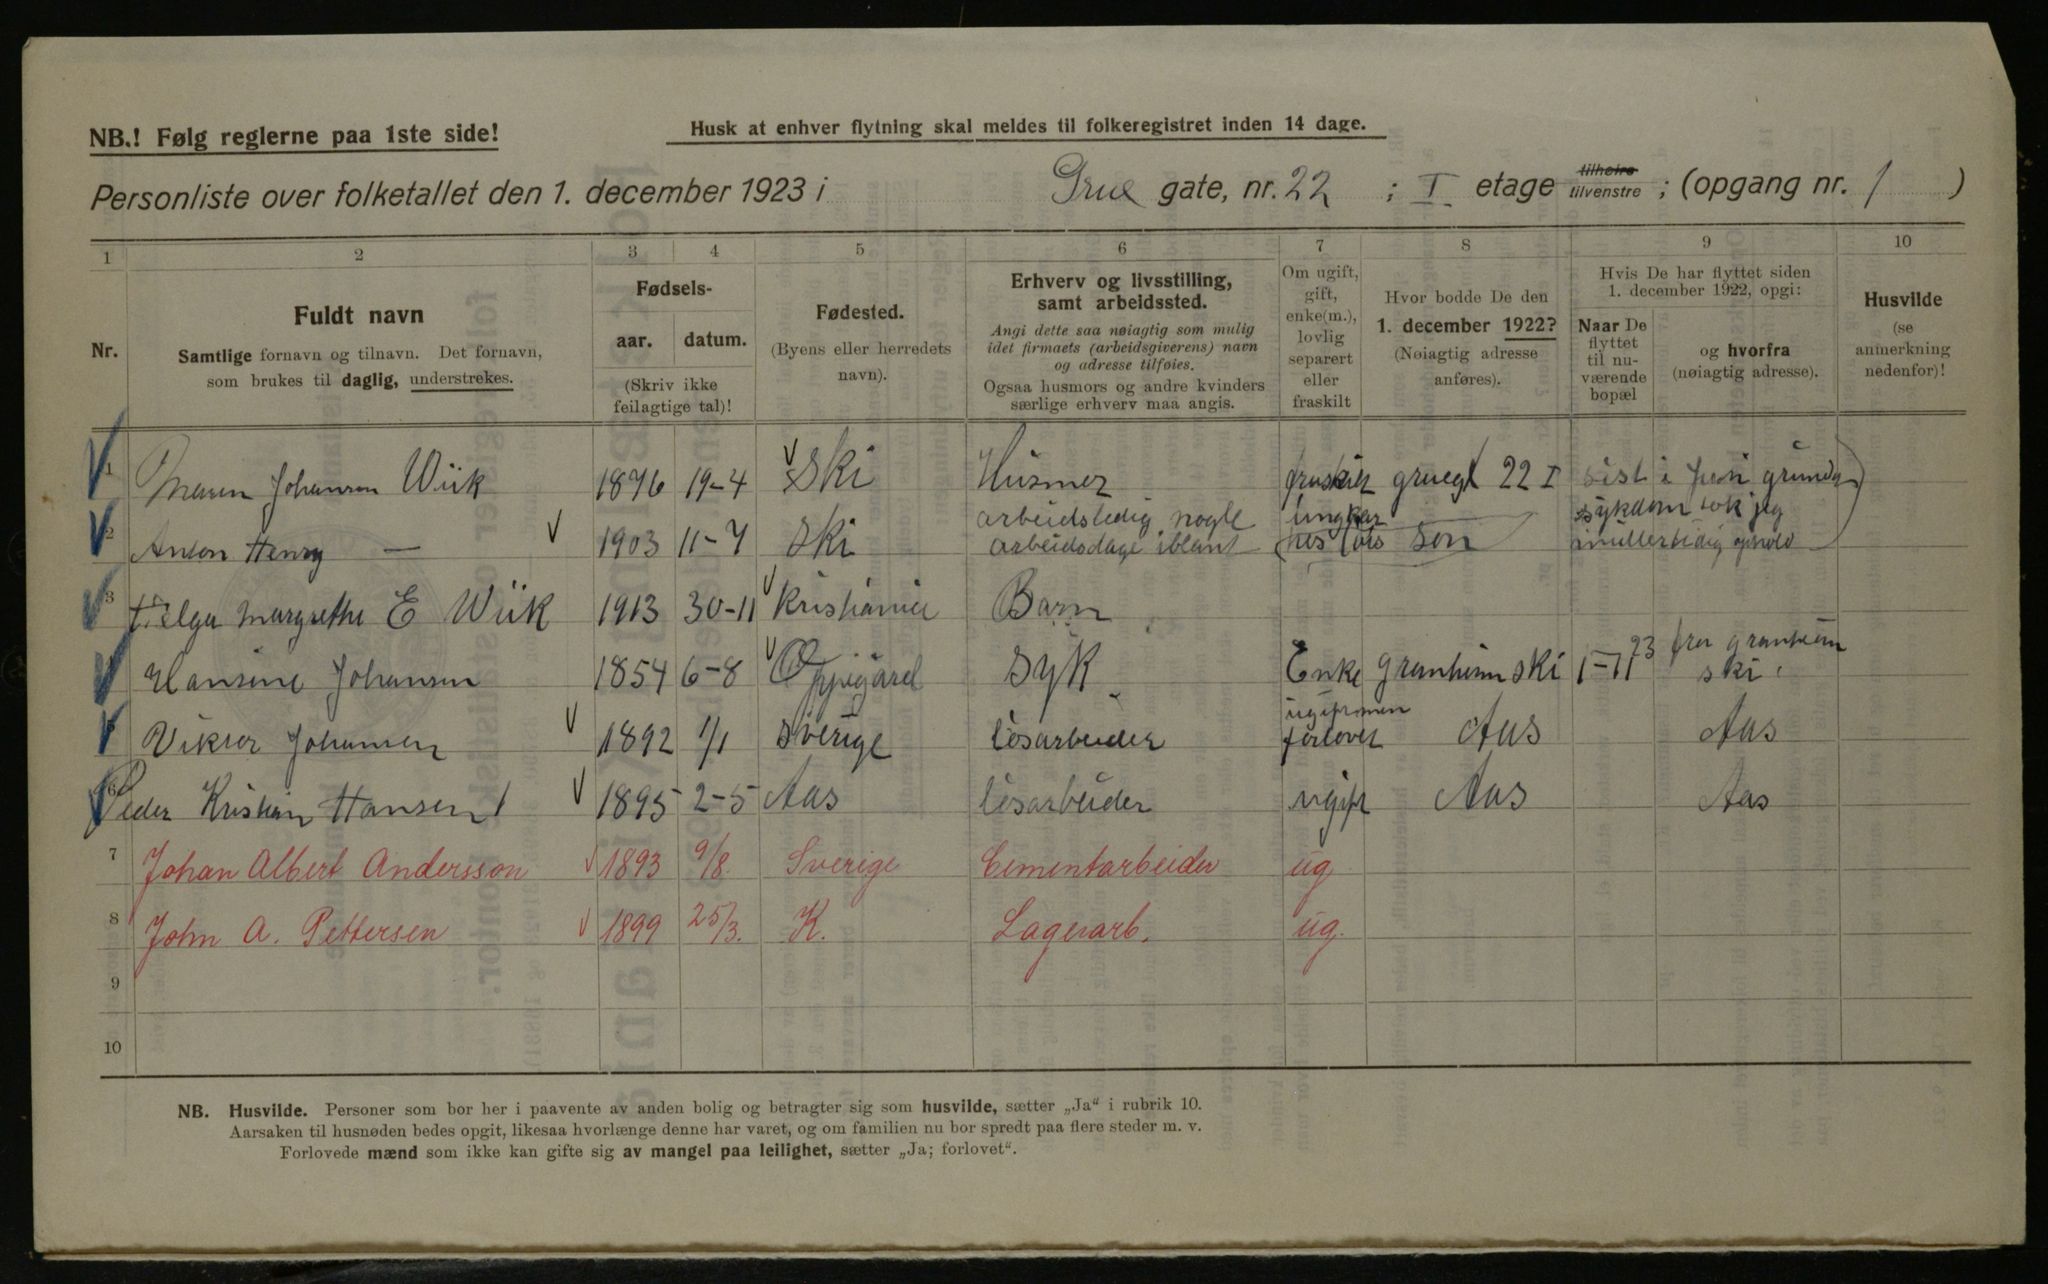 NB.! Følg reglerne paa 1ste side!
Husk at enhver flytning skal meldes til folkeregistret inden 14 dage.
Personliste over folketallet den 1. december 1923 i Grue gate, nr. 22 ; I etage tilhøire tilvenstre ; (opgang nr. 1 )
1 2 3 4 5 6 7 8 9 10
Nr.
Fuldt navn
Samtlige fornavn og tilnavn. Det fornavn,
som brukes til daglig, understrekes.
Fødsels-
aar. datum.
(Skriv ikke
feilagtige tal)!
Fødested.
(Byens eller herredets
navn).
Erhverv og livsstilling,
samt arbeidssted.
Angi dette saa nøiagtig som mulig
idet firmaets (arbeidsgiverens) navn
og adresse tilføies.
Ogsaa husmors og andre kvinders
særlige erhverv maa angis.
Om ugift,
gift,
enke(m.),
lovlig
separert
eller
fraskilt
Hvor bodde De den
1. december 1922?
(Nøiagtig adresse
anføres).
Hvis De har flyttet siden
1. december 1922, opgi:
Naar De
flyttet
til nu-
værende
bopæl
og hvorfra
(nøiagtig adresse).
Husvilde
(se
anmerkning
nedenfor)!
1 Maren Johansen Wiik 1876 19-4 Ski Husmor gruegt 22 I sist i
2 Anton Henry — 1903 11-7 Ski arbeidsledig nogle arbeidsdage iblant ungkar hos son sykdom tok jeg
3 Helga Margrethe E Wiik 1913 30-11 Kristiania Barn
Hansine Johansen 1854 6-8 Oppegård syk Enke granheim ski 1-11 23 fra granheim ski
Viktor Johansen 1892 1/1 sverige løsarbeider forlovet Aas Aas
6 Peder Kristian Hansen 1895 2-5 Aas løsarbeider ugift Aas Aas
7 Johan Albert Andersson 1893 9/8. Sverige Cementarbeider ug
8 John A. Pettersen 1899 25/3. K. Lagerarb. ug.
9
10
NB. Husvilde. Personer som bor her i paavente av anden bolig og betragter sig som husvilde, sætter „Ja“ i rubrik 10.
Aarsaken til husnøden bedes opgit, likesaa hvorlænge denne har varet, og om familien nu bor spredt paa flere steder m. v.
Forlovede mænd som ikke kan gifte sig av mangel paa leilighet, sætter „Ja; forlovet“.